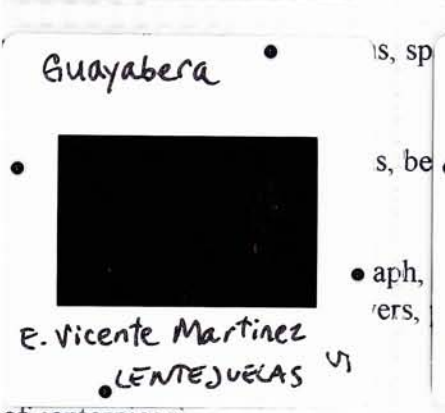 Guayabera
s, sp
s, be
aph,
ers,
E. Vicente Martinez
LENTEJUELAS 5